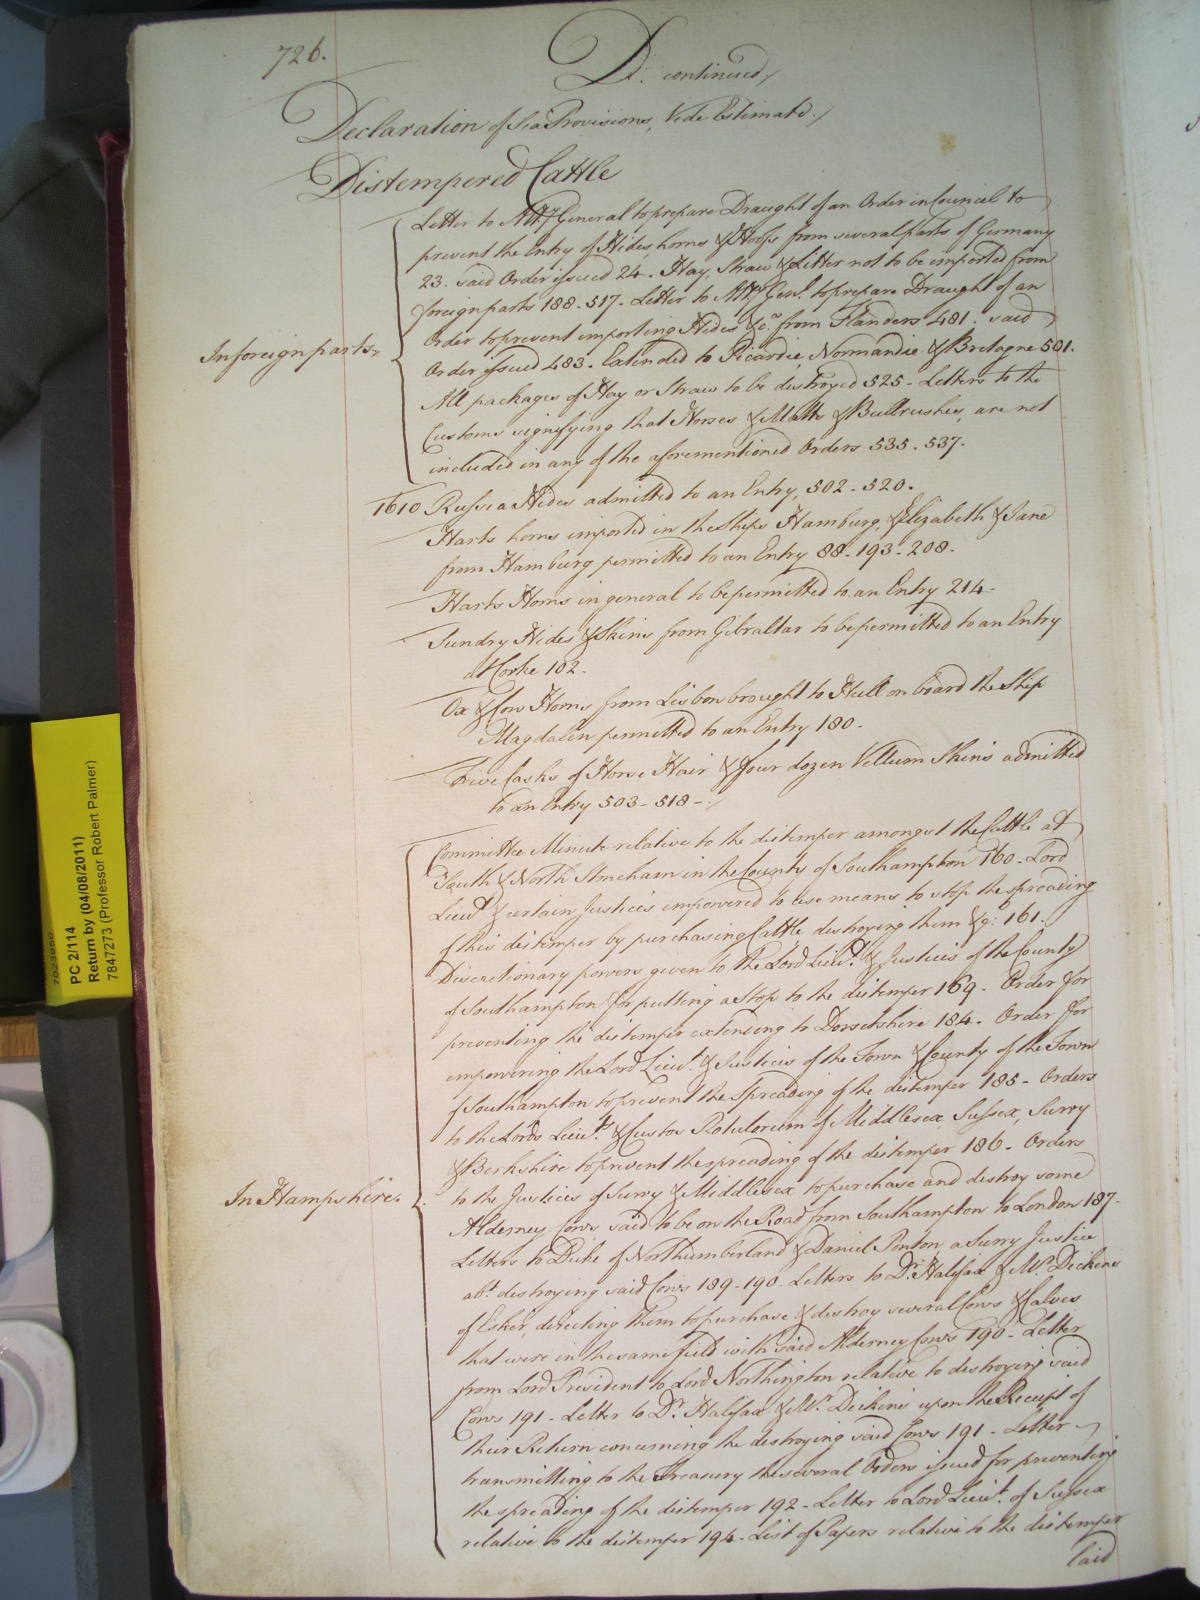 726.
D. continued,
Declaration of Sea Provisions, Vide Estimate.
Distempered Cattle
In foreign parts.
Letter to Att.y General to prepare Draught of an Order in Council to
prevent the Entry of Hides, horns & Hoofs from several parts of Germany
23. said Order issued 24. Hay, Straw & Litter not to be imported from
foreign parts 188. 517. Letter to Att.y Gen.l to prepare Draught of an
Order to prevent importing Hides &c.a from Flanders 481. said
Order issued 483. Extended to Picardie, Normandie & Bretagne 501.
All packages of Hay or Straw to be destroyed 525. Letters to the
Customs signifying that Horses & Matts & Bullrushes, are not
included in any of the aforementioned Orders 535. 537.
1610 Russia Hides admitted to an Entry, 502. 520.
Harts horns imported in the Ships Hamburg, & Elizabeth & Jane
from Hamburg permitted to an Entry 88. 193. 208.
Harts Horns in general to be permitted to an Entry 214.
Sundry Hides & Skins from Gibraltar to be permitted to an Entry
at Corke 102.
Ox & Cow Horns from Lisbon brought to Hull on board the Ship
Magdalen permitted to an Entry 180.
Five Casks of Horse Hair & four dozen Vellum Skins admitted
to an Entry 503 - 518 -
In Hampshire.
Committee Minute relative to the distemper amongst the Cattle at
South & North in the County of Southampton 160. Lord
Lieut.t & certain Justices empowered to use means to stop the spreading
of this distemper by purchasing Cattle destroying them &c. 161.
Discretionary powers given to the Lord Lieu.t & Justices of the County
of Southampton for putting a Stop to the distemper 169. Order for
preventing the distemper extending to Dorsetshire 184. Order for
empowering the Lord Lieu.t & Justices of the Town & County of the Town
of Southampton to prevent the Spreading of the distemper 185. Orders
to the Lords Lieu.ts & Custos Rotulorum of Middlesex, Sussex, Surry
& Berkshire to prevent the spreading of the distemper 186. Orders
to the Justices of Surry & Middlesex to purchase and destroy some
Alderney Cows said to be on the Road from Southampton to London 187.
Letters to Duke of Northumberland & Daniel Ponton, a Surry Justice
ab.t destroying said Cows 189 - 190. Letters to D.r Halifax & M.r Dickins
of Esher, directing them to purchase & destroy several Cows & Calves
that were in the same field with said Alderney Cows 190. Letter
from Lord President to Lord Northington relative to destroying said
Cows 191. Letter to D.r Halifax & M.r Dickins upon the Receipt of
their Return concerning the destroying said Cows 191. Letter
transmitting to the Treasury the several Orders issued for preventing
the spreading of the distemper 192. Letter to Lord Lieut.t of Sussex
relative to the distemper 194. List of Papers relative to the distemper
laid
7023950
PC 2/114
Return by (04/08/2011)
7847273 (Professor Robert Palmer)